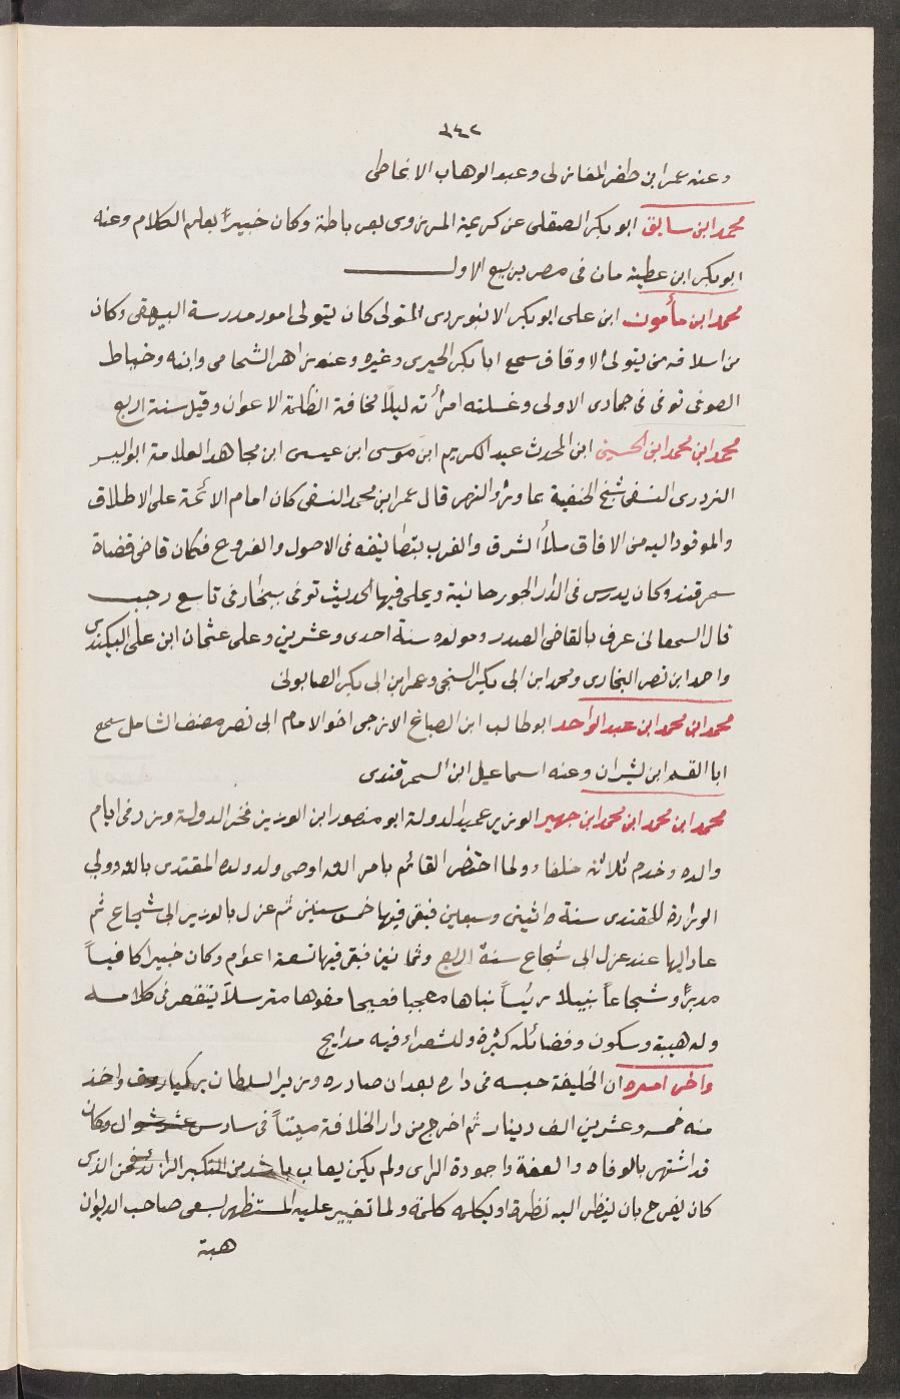 ٦٤٢
وعنه عمر ابن ظفر المغازلى وعبد الوهاب الانماطى
محمد ابن سابق ابو بكر الصقلى عن كريمة المروزى بعرباطة وكان خبيرًا بعلم الكلام وعنه
ابو بكر ابن عطية مات فى مصر ربيع الاول
محمد ابن مأمون ابن على ابو بكر الابيوردى المتولى كان يتولى امور مدرسة البيهقى وكان
من اسلافه من يتولى الاوقاف سمع ابا بكر الحيرى وغيره وعنه زاهر الشحامى وابنه وخياط
الصوفى توفى فى جمادى الاولى وغسلته امرأته ليلاً مخافة الظلمة الاعوان وقيل سنة اربع
محمد ابن محمد ابن الحسين ابن المحدث عبد الكريم ابن موسى ابن عيسى ابن مجاهد العلامة ابو اليسر
البزدوى النسفى شيخ الحنفية بما وراء النهر قال عمر ابن محمد النسفى كان امام الائمة على الاطلاق
والموفود اليه من الافاق ملأ الشرق والغرب بتصانيفه فى الاصول والفروع فكان قاضى قضاة
سمرقند وكان يدرس فى الدار الجورجانية ويملى فيها الحديث توفى ببخارى فى تاسع رجب
قال السمعانى عرف بالقاضى الصدر ومولده سنة احدى وعشرين وعلى عثمان ابن على البيكندى
واحمد ابن نصر البخارى ومحمد ابن ابى بكر السنجى وعمر ابن ابى بكر الصابونى
محمد ابن محمد ابن عبد الواحد ابو طالب ابن الصباغ الازجى اخو الامام ابى نصر مصنف الشامل سمع
ابا القسم ابن بشران وعنه اسماعيل ابن السمرقندى
محمد ابن محمد ابن محمد ابن جهير الوزير عميد الدولة ابو منصور ابن الوزير فخر الدولة وزر فى ايام
والده وخدم ثلاثة خلفاء ولما احتضر القائم بامر الله اوصى ولد ولده المقتدى بالله وولي
الوزارة للمقتدى سنة اثنين وسبعين فبقى فيها خمس سنين ثم عزل بالوزير ابى شجاع ثم
عاد اليها عند عزل ابى شجاع سنة اربع وثمانين فبقى فيها تسعة اعوام وكان خبيرا كافياً
مدبرًا وشجاعاً نبيلا رئيساً تياها معجبا فصيحا مفوها مترسلاً يتقعر فى كلامه
وله هيبة وسكون وفضائله كثيرة وللشعراء فيه مدايح
واخر امره ان الخليفة حبسه فى داره بعد ان صادره وزير السلطان بركياروق واخذ
منه خمسة وعشرين الف دينار ثم اخرج من دار الخلافة ميتاً فى سادس عشر شوال وكان
قد اشتهر بالوفاء والعفة وجودة الراى ولم يكن يعاب باشد من التكبر الزائد فمن الذى
كان يفرح بان ينظر اليه نظرة او يكلمه كلمة ولما تغير عليه المستظهر بسعى صاحب الديوان
هبة